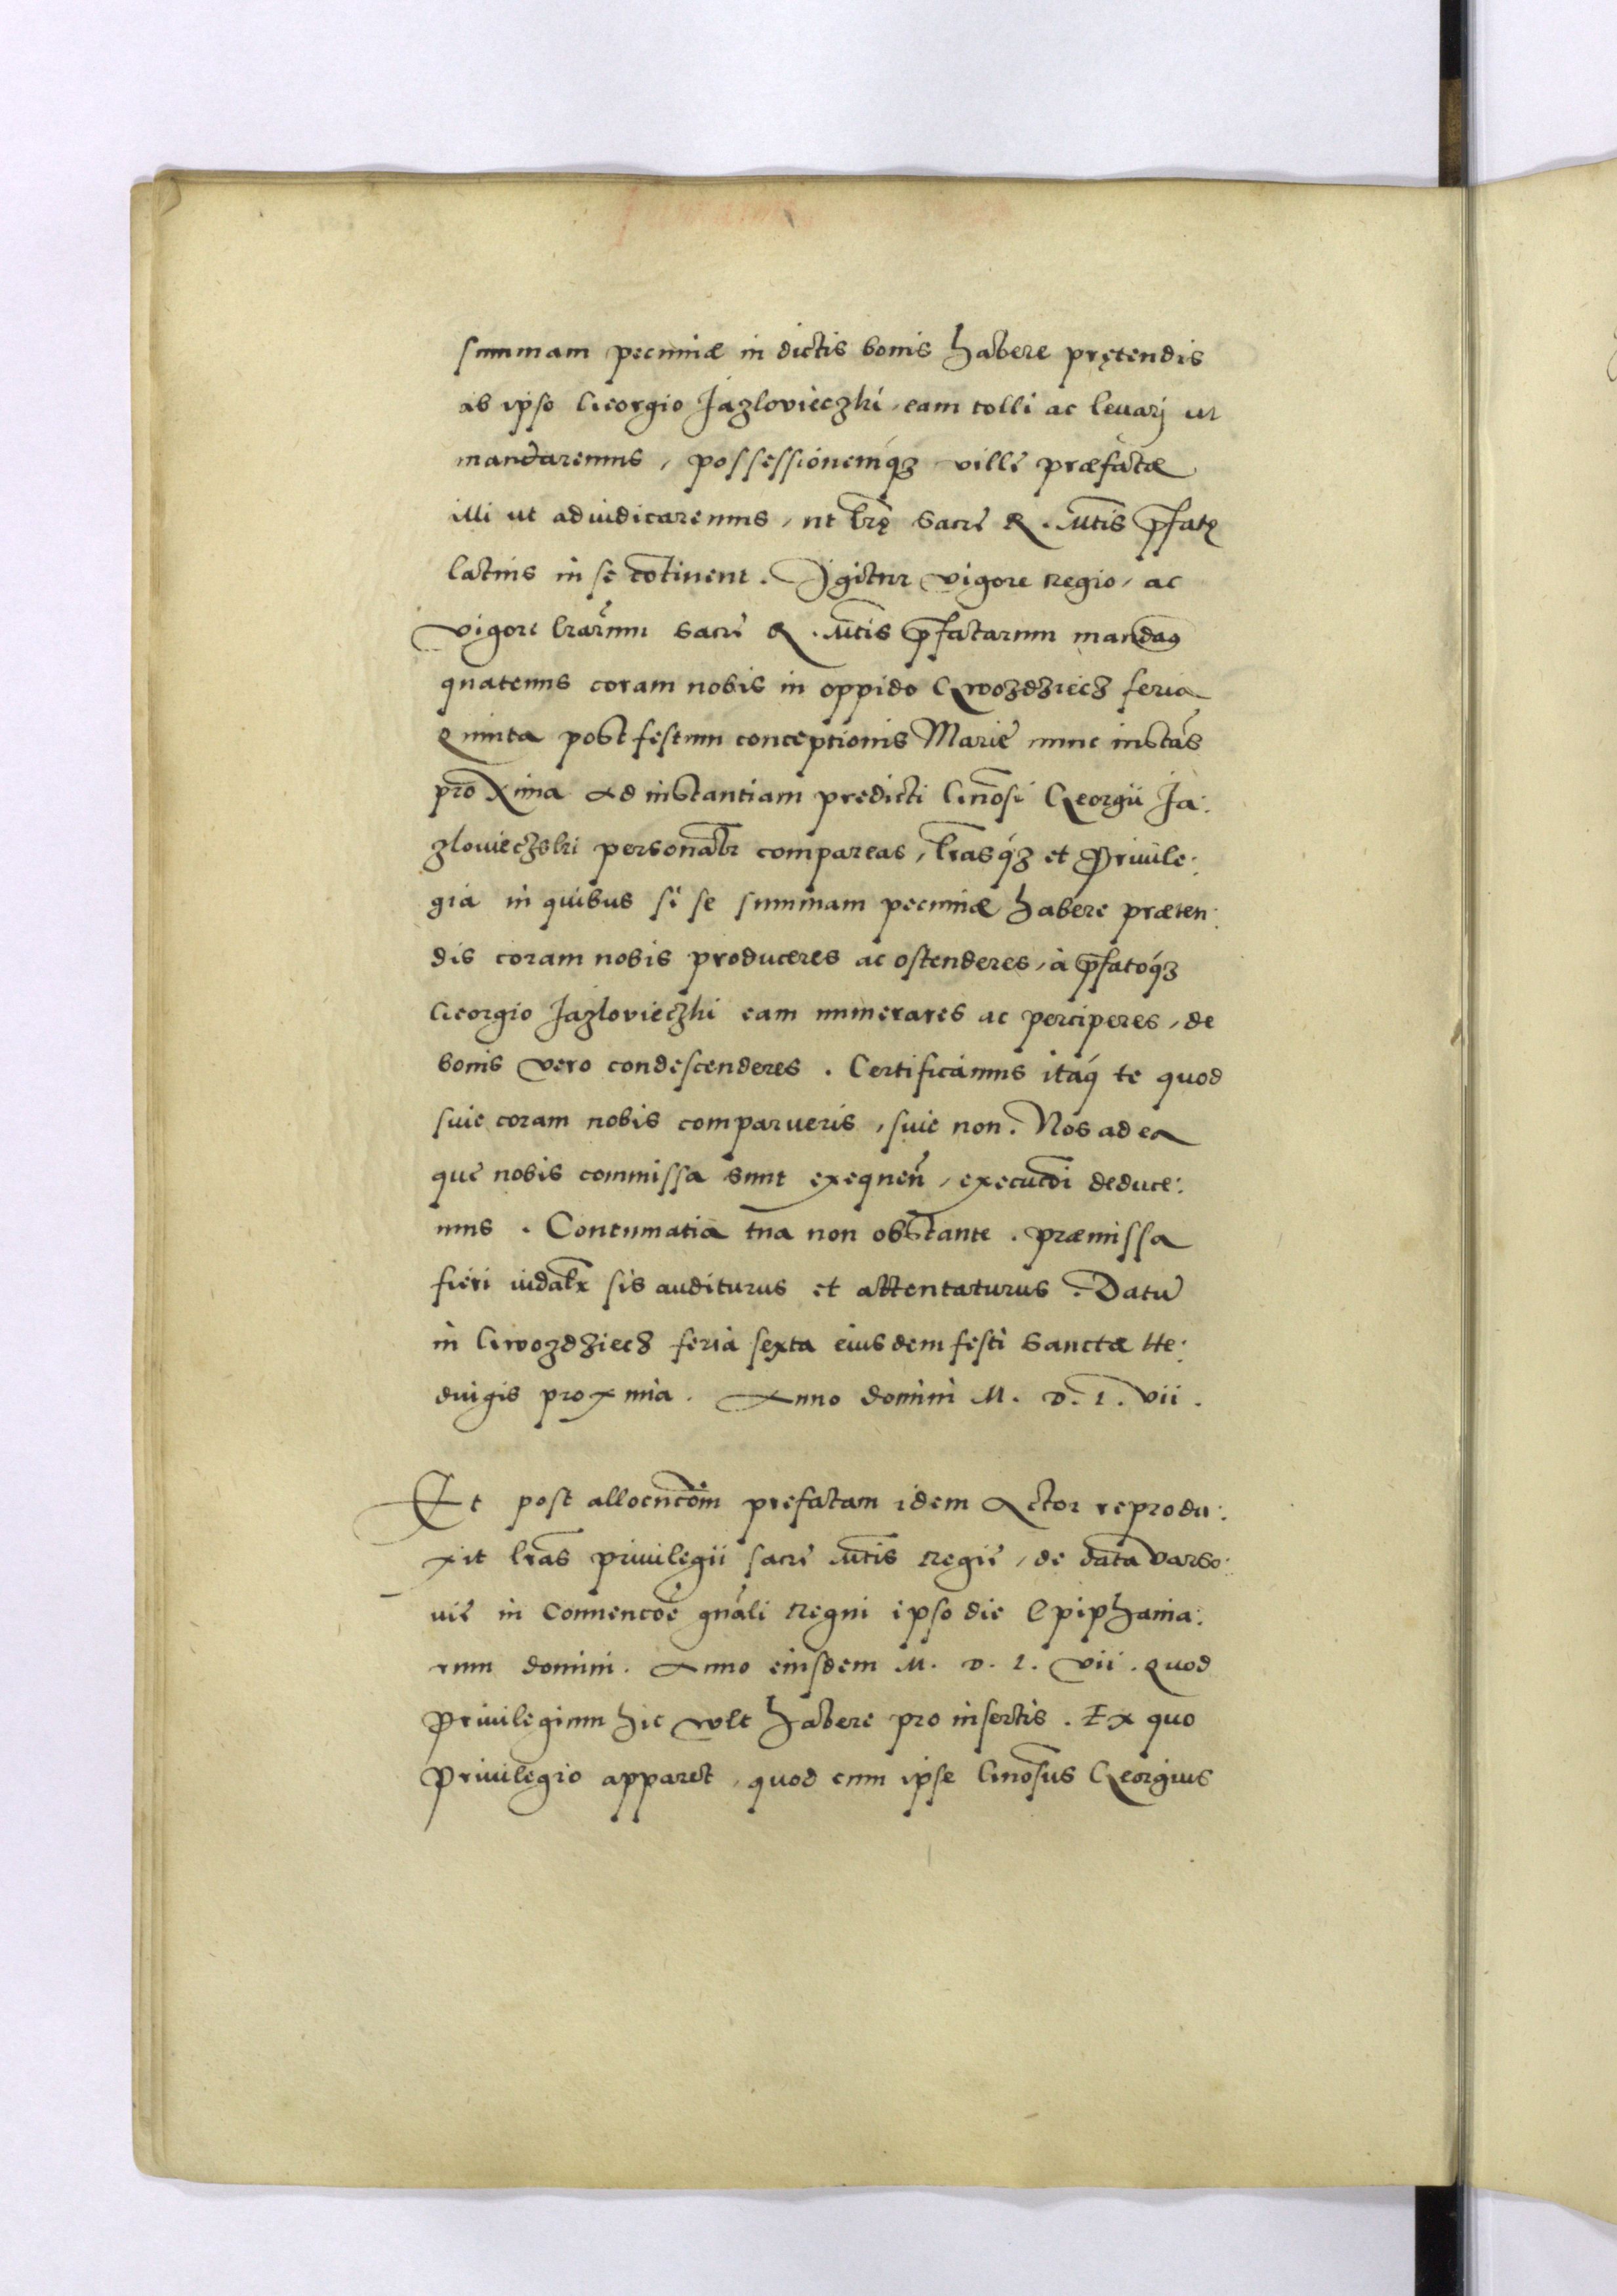 summam pecuniæ in dictis bonis habere prętendis
ab ipso Georgio Jazlovieczki, eam tolli ac levarj ut
mandaremus, possessionemq́ꝫ ville præfatæ
illi ut adiudicaremus, ut lr̄ę Sacre R. Mt̄is p̄fatę
latius in se cōtinent. Igitur vigore regio, ac
vigore lr̄arum Sacre R. Mt̄is p̄fatarum mandaꝰ
quatenus coram nobis in oppido Gwozdziecz feria
Quinta post festum conceptionis Marie nunc instās
proxima ad instantiam predicti Gnōsi Georgii Ja:
zlowieczski personal̄r compareas, lr̄asq́ꝫ et Privile:
gia in quibus si se summam pecuniæ habere præten:
dis coram nobis produceres ac ostenderes, à p̄fatoq́ꝫ
Georgio Jazlovieczki eam numerares ac perciperes, de
bonis vero condescenderes. Certificamus itaq́ te quod
sive coram nobis comparueris, sive non. Nos ad ea
que nobis commissa sunt exequen̄, execucōi deduce:
mus. Contumatia tua non obstante. præmissa
fieri iudal̄r sis auditurus et attentaturus. Datū
in Gwozdziecz feria sexta eiusdem festi Sanctæ He:
duigis proxima. Anno domini M. D. L. vii.
Et post allocucōēm prefatam idem Actor reprodu:
xit lr̄as privilegii sacre Mt̄is Regie, de data Varso:
vie in Conuencōe gn̄ali Regni ipso die Epiphania:
rum domini. Anno eiusdem M. D. L. vii. Quod
Privilegium hic vult habere pro insertis. Ex quo
Privilegio apparet, quod cum ipse Gnōsus Georgius